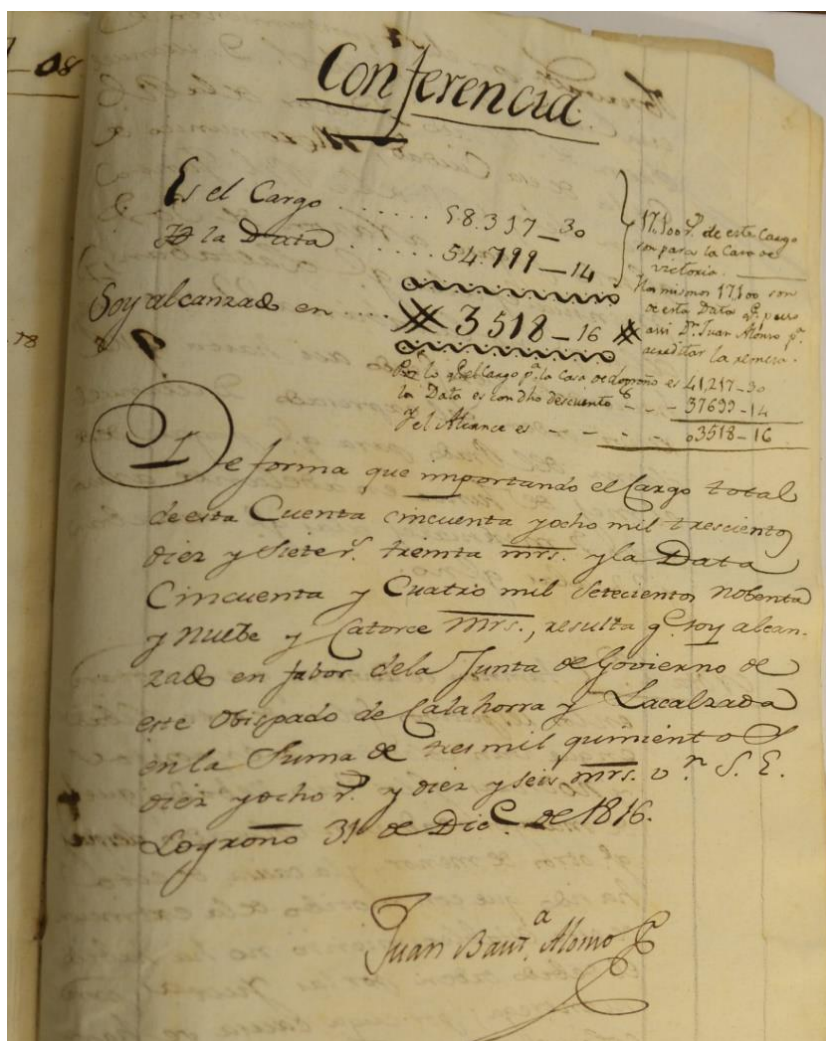 08
Conferencia
Es el Cargo . . . . . . . 58.317_30
Yd la Data . . . . . . . 54.799_14
Soy alcanzado en . . . . 3518_16
17,100 r.s de este Cargo
son para la Casa de
Victoria.
los mismos 17,100 son
de esta Data q.e puso
assi D.n Juan Alonso p.a
acreditar la remesa.
Por lo q.e el Cargo p.a la Casa de Logroño es 41,217_30
la Data es con dho descuento - - - 37699_14
Y el Alcance es - - - - - 03518_16
78
De forma que importando el Cargo total
de esta Cuenta cincuenta y ocho mil trescientos
diez y siete r.s treinta mrs. y la Data
Cincuenta y Cuatro mil Setecientos nobenta
y nuebe y Catorce mrs., resulta q.e soy alcan-
zado en fabor dela Junta de Govierno de
este Obispado de Calahorra y Lacalzada
en la Suma de tres mil quinientos
diez y ocho r.s y diez y seis mrs. v.n S. E.
Logroño 31 de Dic.e de 1816.
Juan Baut.a Alonso